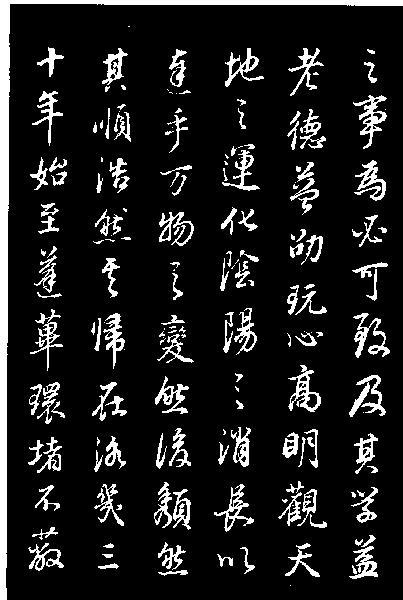 之事為必可致及其学益
老德益劭玩心高明觀天
地之運化陰陽之消長以
達乎万物之變然後頹然
其順浩然其歸在洛幾三
十年始至蓬蓽環堵不蔽